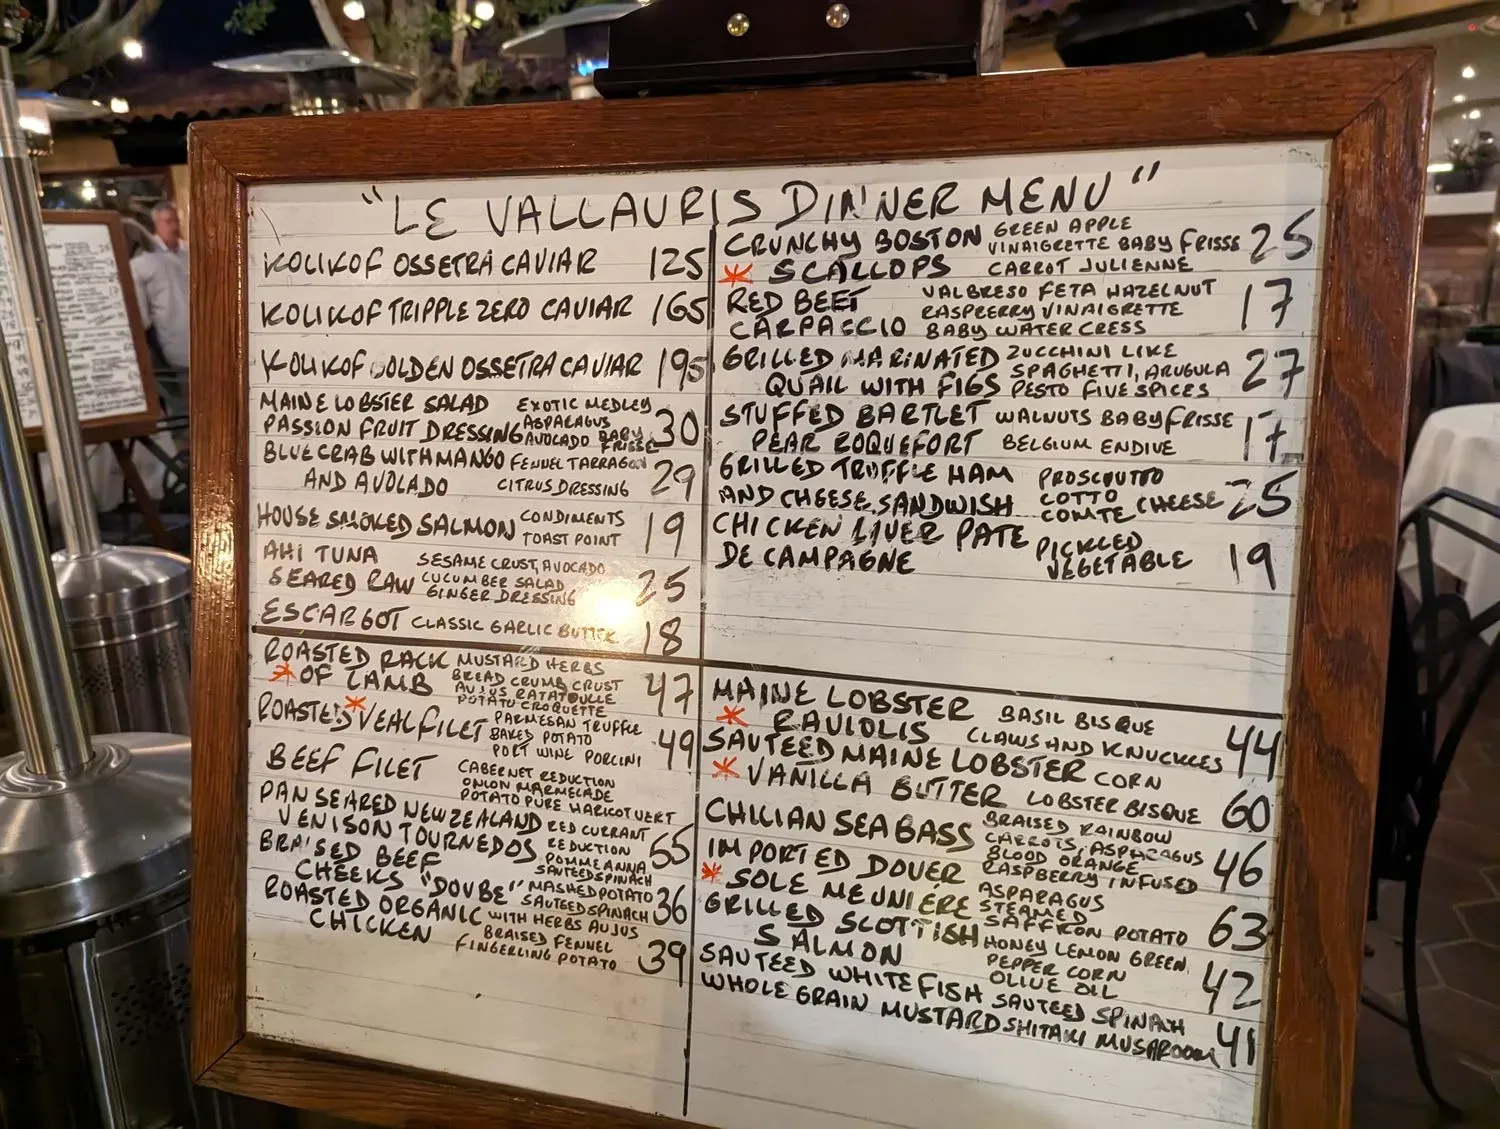 "LE VALLAURIS DINNER MENU"
KOLIKOF OSSETRA CAVIAR 125
KOLIKOF TRIPPLE ZERO CAVIAR 165
KOLIKOF GOLDEN OSSETRA CAVIAR 195
MAINE LOBSTER SALAD EXOTIC MEDLEY
PASSION FRUIT DRESSING ASPARAGUS AVOCADO BABY FRISSE 30
BLUE CRAB WITH MANGO FENNEL TARRAGON
AND AVOLADO CITRUS DRESSING 29
HOUSE SMOKED SALMON CONDIMENTS TOAST POINT 19
AHI TUNA SESAME CRUST, AVOCADO
SEARED RAW CUCUMBER SALAD GINGER DRESSING 25
ESCARGOT CLASSIC GARLIC BUTTER 18
CRUNCHY BOSTON GREEN APPLE VINAIGRETTE BABY FRISSE 25
* SCALLOPS CARROT JULIENNE
RED BEET VALBRESO FETA HAZELNUT
CARPACCIO RASPBERRY VINAIGRETTE BABY WATER CRESS 17
GRILLED MARINATED ZUCCHINI LIKE
QUAIL WITH FIGS SPAGHETTI, ARUGULA PESTO FIVE SPICES 27
STUFFED BARTLET WALNUTS BABY FRISSE
PEAR ROQUEFORT BELGIUM ENDIVE 17
GRILLED TRUFFLE HAM PROSCOUTTO
AND CHEESE SANDWISH COTTO COMTE CHEESE 25
CHICKEN LIVER PATE PICKLED
DE CAMPAGNE VEGETABLE 19
ROASTED RACK MUSTARD HERBS
* OF LAMB BREAD CRUMB CRUST AU JUS RATATOUILLE POTATO CROQUETTE 47
ROASTED * VEAL FILET PARMESAN TRUFFLE BAKED POTATO PORT WINE PORCINI 49
BEEF FILET CABERNET REDUCTION
ONION MARMELADE
POTATO PURE HARICOT VERT
PAN SEARED NEW ZEALAND RED CURRANT
VENISON TOURNEDOS REDUCTION POMME ANNA SAUTEED SPINACH 55
BRAISED BEEF
CHEEKS "DOUBE" MASHED POTATO SAUTEED SPINACH 36
ROASTED ORGANIC WITH HERBS AU JUS
CHICKEN BRAISED FENNEL FINGERLING POTATO 39
MAINE LOBSTER BASIL BISQUE
* RAVIOLIS CLAWS AND KNUCKLES 44
SAUTEED MAINE LOBSTER CORN
* VANILLA BUTTER LOBSTER BISQUE 60
CHILIAN SEA BASS BRAISED RAINBOW CARROTS, ASPARAGUS BLOOD ORANGE RASPBERRY INFUSED 46
IMPORTED DOVER
* SOLE MEUNIERE ASPARAGUS STEAMED SAFFRON POTATO 63
GRILLED SCOTTISH HONEY LEMON GREEN
SALMON PEPPER CORN OLIVE OIL 42
SAUTEED WHITE FISH SAUTEED SPINACH
WHOLE GRAIN MUSTARD SHITAKI MUSHROOM 41